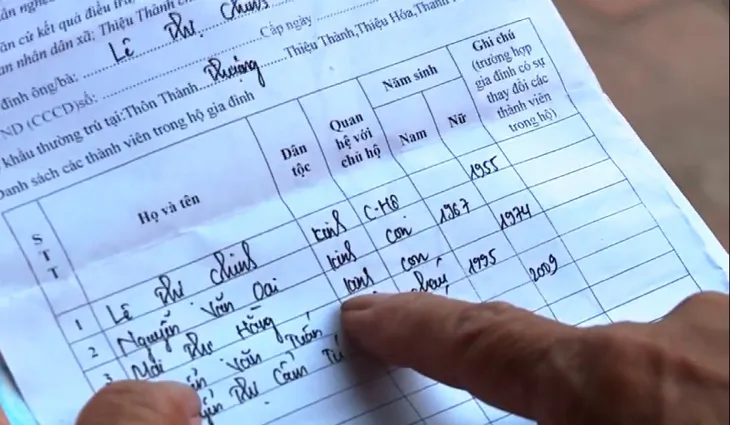 ăn cứ kết quả điều tra,
an nhân dân xã: Thiệu Thành
đình ông/bà: Lê Thị Chinh
ND (CCCD)số: Cấp ngày
khẩu thường trú tại:Thôn Thành Thượng Thiệu Thành,Thiệu Hóa,Thanh
Danh sách các thành viên trong hộ gia đình
STT Họ và tên Dân tộc Quan hệ với chủ hộ Năm sinh Nam Nữ Ghi chú (trường hợp gia đình có sự thay đổi các thành viên trong hộ)
1 Lê Thị Chinh Kinh C-Hộ 1955
2 Nguyễn Văn Oai Kinh con 1967
3 Mai Thị Hằng Kinh con 1974
Văn Tuấn 1995
Thị Cẩm Tú 2009